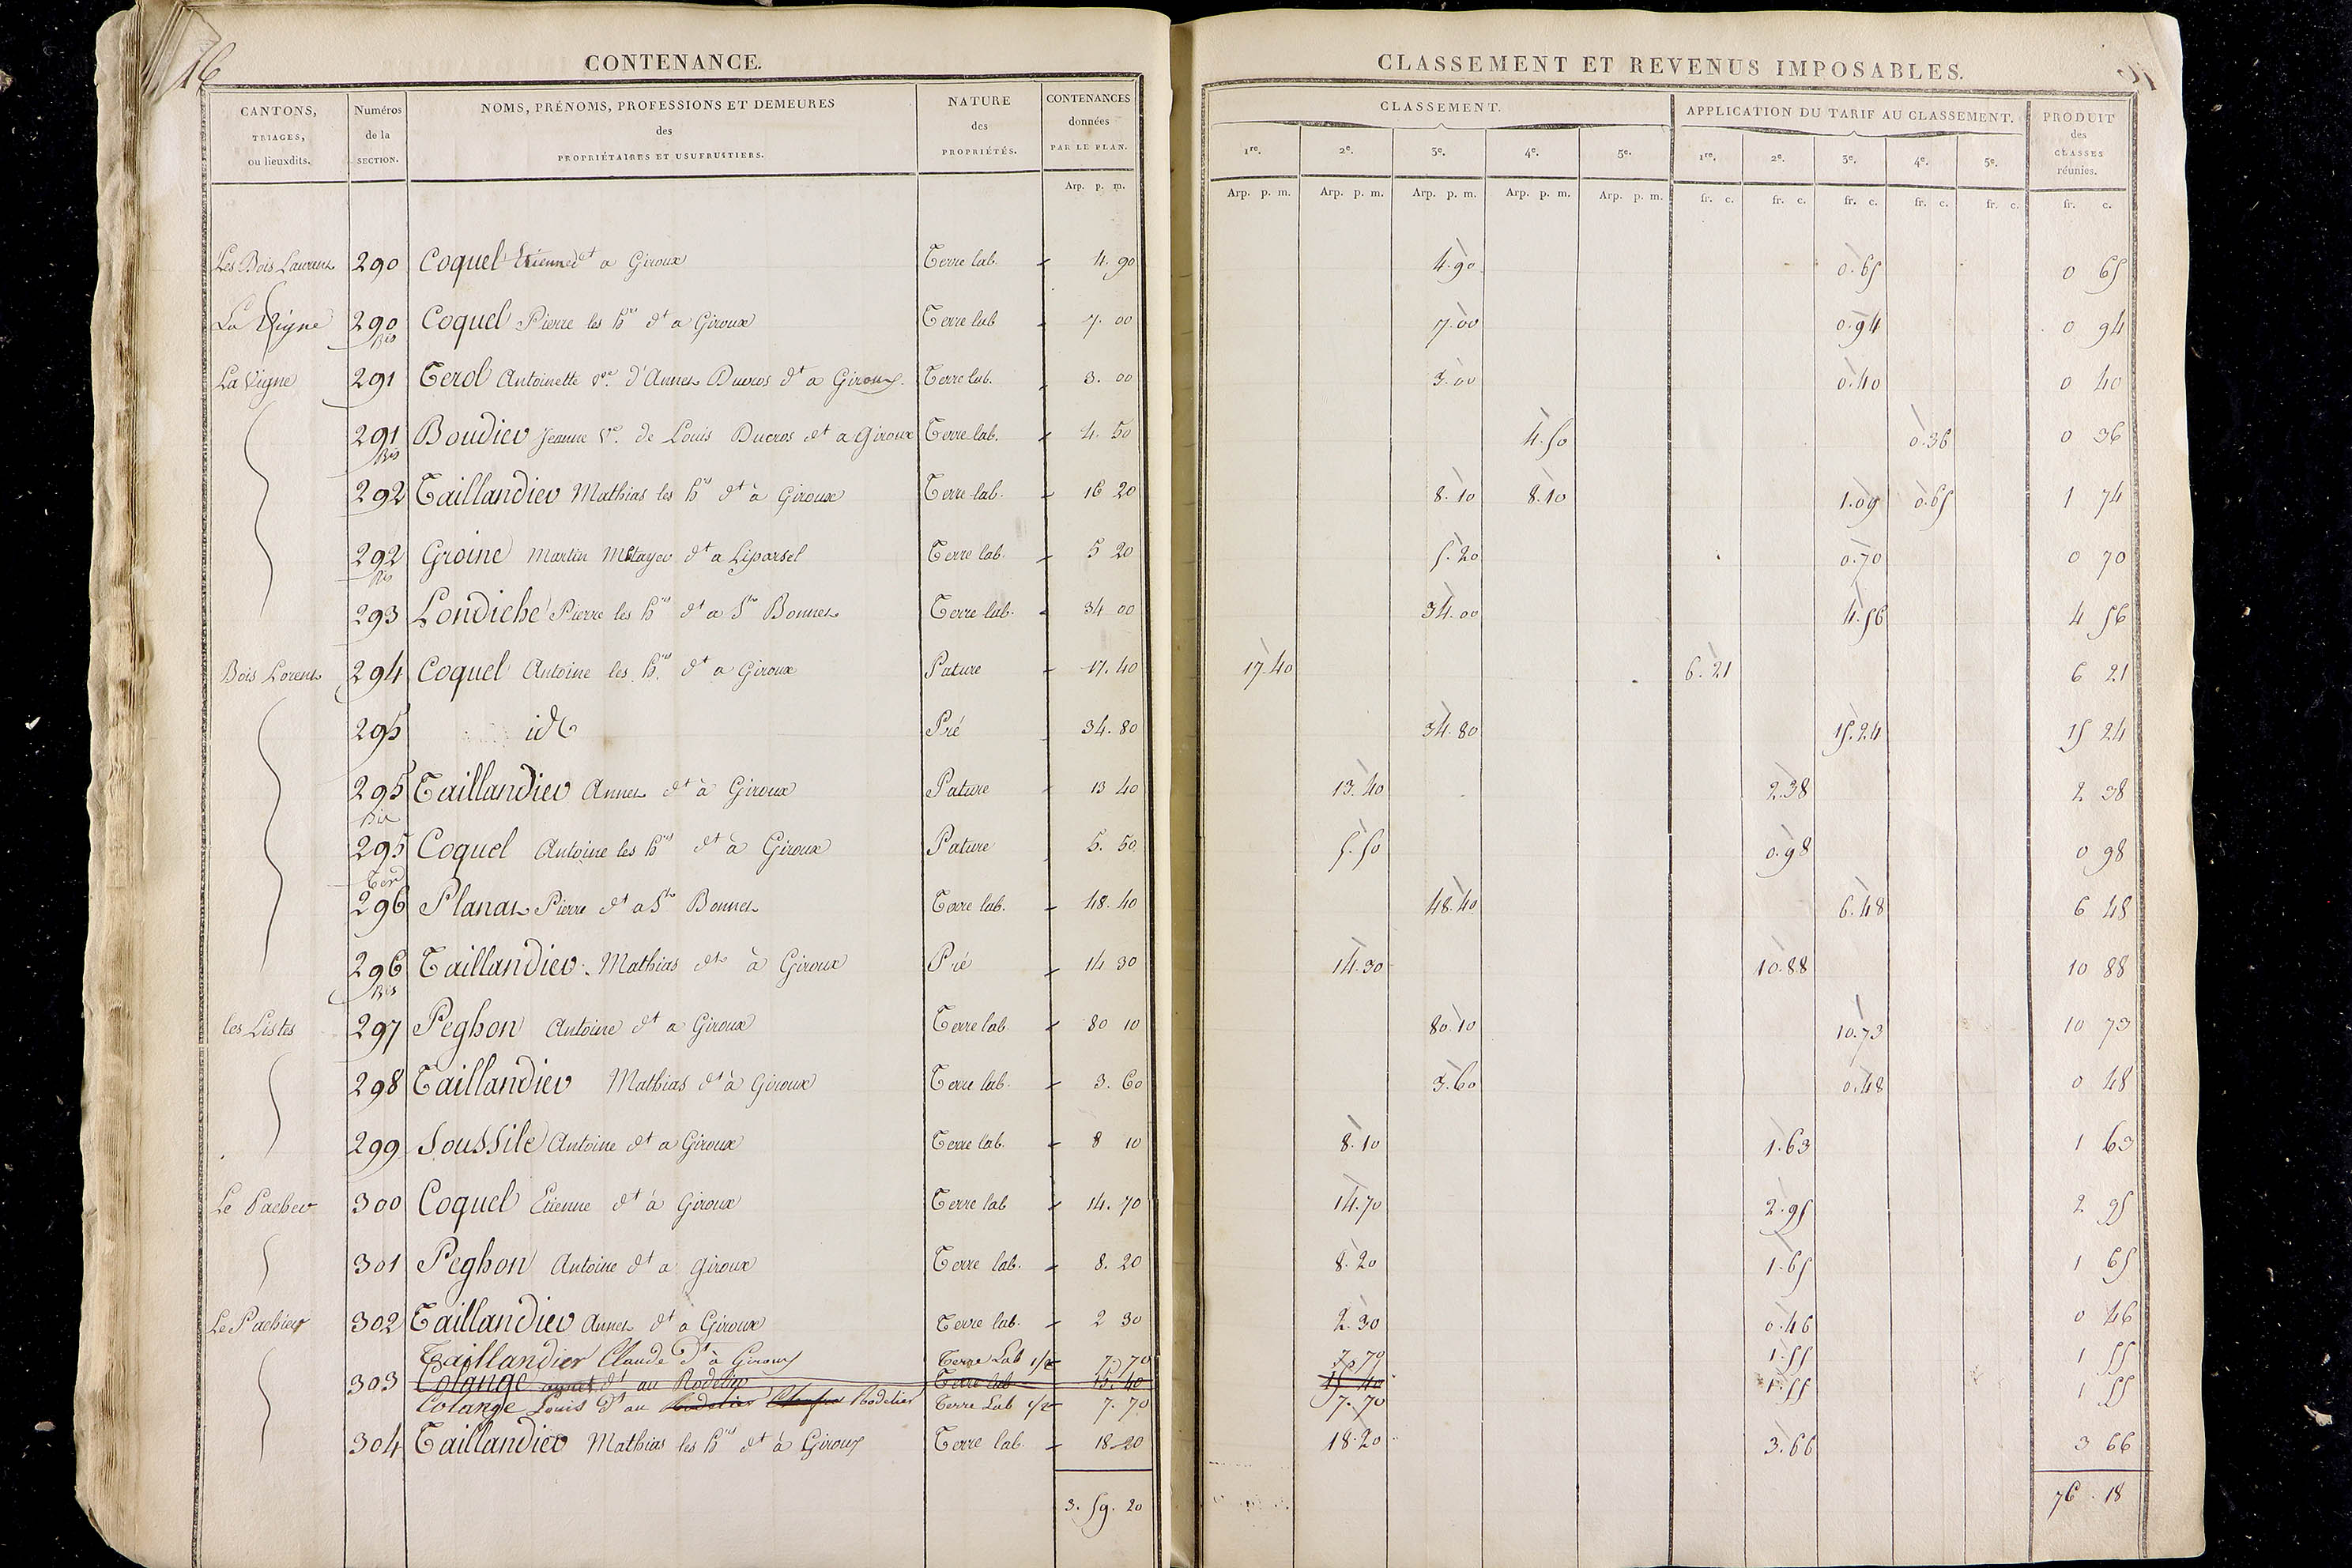 16
CONTENANCE.
CANTONS, TRIAGES, ou lieuxdits.
Numéros de la SECTION.
NOMS, PRÉNOMS, PROFESSIONS ET DEMEURES des PROPRIÉTAIRES ET USUFRUITIERS.
NATURE des PROPRIÉTÉS.
CONTENANCES données PAR LE PLAN.
Arp. p. m.
CLASSEMENT ET REVENUS IMPOSABLES.
CLASSEMENT.
APPLICATION DU TARIF AU CLASSEMENT.
PRODUIT des CLASSES réunies.
1re. 2e. 3e. 4e. 5e. 1re. 2e. 3e. 4e. 5e.
Arp. p. m. Arp. p. m. Arp. p. m. Arp. p. m. Arp. p. m. fr. c. fr. c. fr. c. fr. c. fr. c. fr. c.
Les Bois Laurent 290 Coquel Etienne dt a Giroux Terre lab. 4. 90 4.90 0.65 0 65
La Vigne 290 Bis Coquel Pierre les hers dt a Giroux Terre lab 7. 00 7.00 0.94 0 94
La Vigne 291 Terol Antoinette ve. d'Annet Ducros dt a Giroux. Terre lab. 3. 00 3.00 0.40 0 40
291 Bis Boudier Jeanne Ve. de Louis Ducros dt a Giroux Terre lab. 4. 50 4.50 0.36 0 36
292 Taillandier Mathias les hers dt à Giroux Terre lab. 16 20 8.10 8.10 1.09 0.65 1 74
292 Bis Groine Martin Métayer dt a Liparsel Terre lab. 5 20 5.20 0.70 0 70
293 Londiche Pierre les hers dt a St Bonnet Terre lab. 34 00 34.00 4.56 4 56
Bois Lorent 294 Coquel Antoine les hers dt a Giroux Pature 17. 40 17.40 6.21 6 21
295 id Pré 34. 80 34.80 15.24 15 24
295 bis Taillandier Annet dt à Giroux Pature 13 40 13.40 2.38 2 38
295 Ter Coquel Antoine les hers dt à Giroux Pature 5. 50 5.50 0.98 0 98
296 Planat Pierre dt a St Bonnet Terre lab. 48. 40 48.40 6.48 6 48
296 Bis Taillandier. Mathias dt à Giroux Pré 14 30 14.30 10.88 10 88
les Listes 297 Peghon Antoine dt a Giroux Terre lab 80 10 80.10 10.73 10 73
298 Taillandier Mathias dt à Giroux Terre lab. 3. 60 3.60 0.48 0 48
299 Soussile Antoine dt a Giroux Terre lab. 8 10 8.10 1.63 1 63
Le Pacher 300 Coquel Etienne dt à Giroux Terre lab 14. 70 14.70 2.95 2 95
301 Peghon Antoine dt a Giroux Terre lab. 8. 20 8.20 1.65 1 65
Le Pachier 302 Taillandier Annet dt a Giroux Terre lab. 2 30 2.30 0.46 0 46
Taillandier Claude dt à Giroux Terre Lab 1/2 7. 70 7.70 1.55 1 55
303 Colange dt au Rodelier Terre lab 15. 40 15 40 1.55 1 55
Colange Louis dt au Rodelier Rodelier Terre Lab 1/2 7. 70 7.70
304 Taillandier Mathias les hers dt à Giroux Terre lab. 18 20 18.20 3.66 3 66
3. 59. 20 76. 18